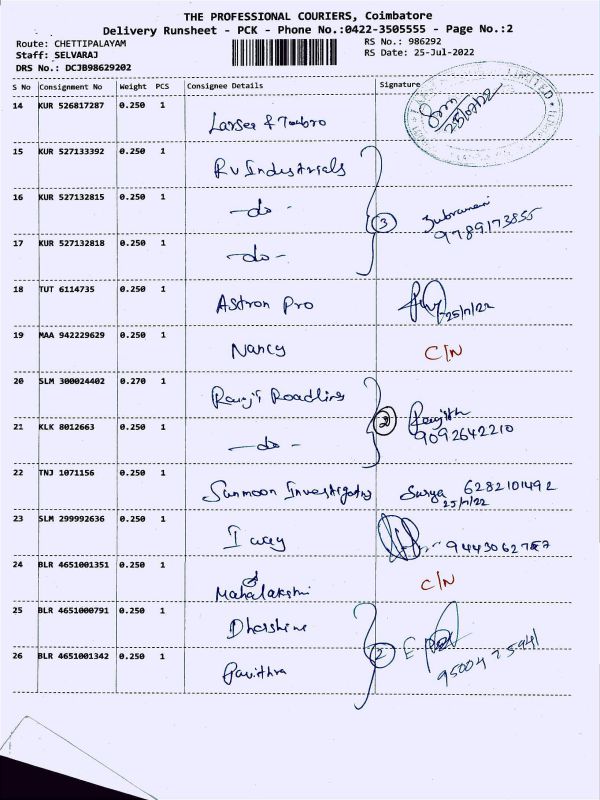 THE PROFESSIONAL COURIERS, Coimbatore
Delivery Runsheet - PCK - Phone No.:0422-3505555 - Page No.:2
Route: CHETTIPALAYAM RS No.: 986292
Staff: SELVARAJ RS Date: 25-Jul-2022
DRS No.: DCJB98629202
S No Consignment No Weight PCS Consignee Details Signature
14 KUR 526817287 0.250 1
Larsen & Toubro 25/07/22
15 KUR 527133392 0.250 1
RV Industrials
16 KUR 527132815 0.250 1
-do- 3 Subramani
9789173855
17 KUR 527132818 0.250 1
-do-
18 TUT 6114735 0.250 1
Astron Pro 25/7/22
19 MAA 942229629 0.250 1
Nancy C/N
20 SLM 300024402 0.270 1
Ranjit Roadlines
21 KLK 8012663 0.250 1
-do- 2 Ranjith
9092642210
22 TNJ 1071156 0.250 1
Sunmoon Investigating Surya 6282101492
25/7/22
23 SLM 299992636 0.250 1
I way
24 BLR 4651001351 0.250 1
Mahalakshmi C/N
25 BLR 4651000791 0.250 1
Dharshini
26 BLR 4651001342 0.250 1
Pavithra 2